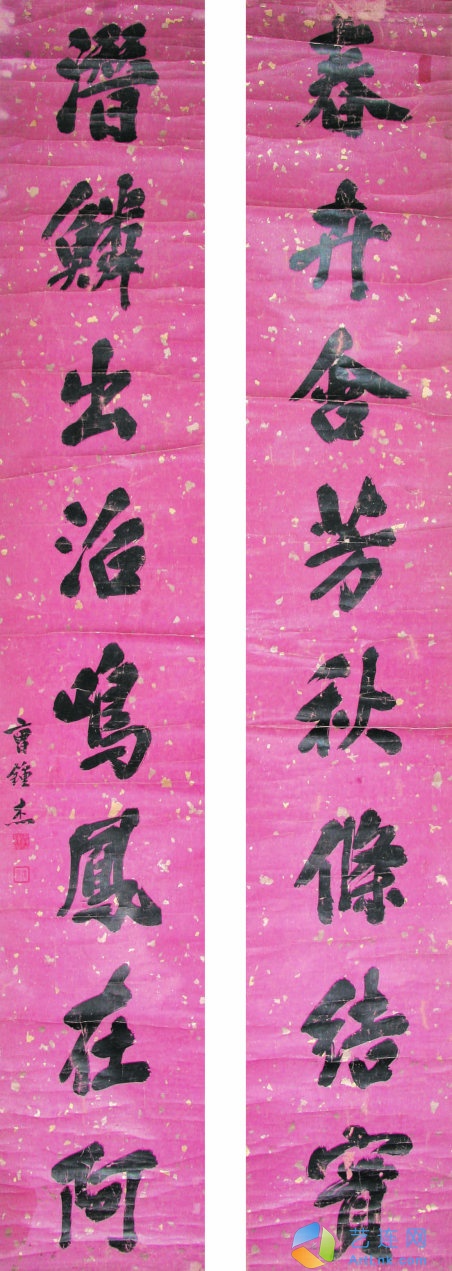 春卉含芳秋條結實
潛鱗出沼鳴鳳在阿
曹鍾杰